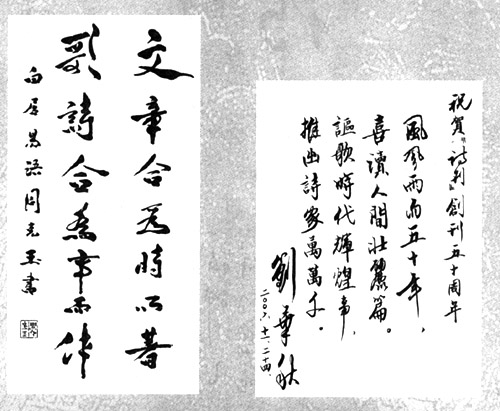 文章合為時而著
歌詩合為事而作
白居易語周克玉書
祝賀《詩刊》創刊五十周年
風風雨雨五十年，
喜讀人間壯麗篇。
謳歌時代輝煌事，
推出詩家萬萬千。
劉華秋
二〇〇六、十一、二十四.